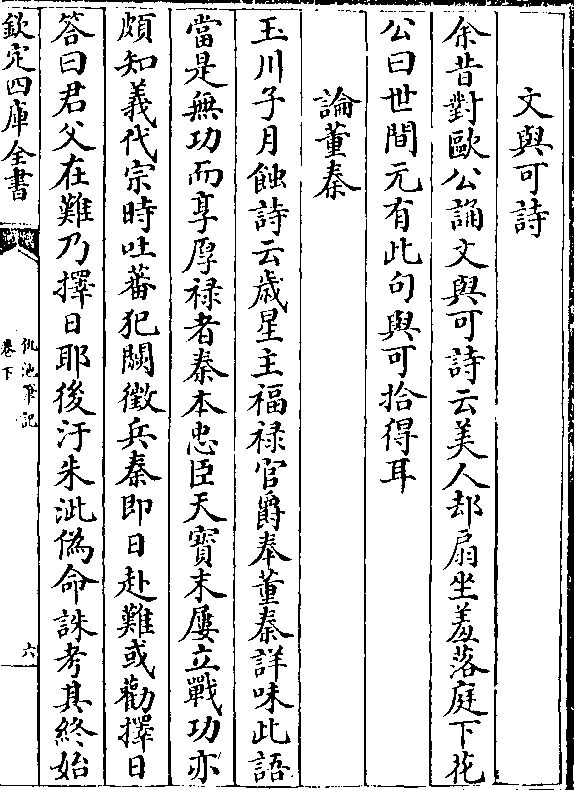 文與可詩
余昔對歐公誦文與可詩云美人却扇坐羞落庭下花
公曰世間元有此句與可拾得耳
論董秦
玉川子月蝕詩云歳星主福禄官爵奉董秦詳味此語
當是無功而享厚禄者秦本忠臣天寳末屢立戰功亦
頗知義代宗時吐蕃犯闕徴兵秦即日赴難或勸擇日
答曰君父在難乃擇日耶後汙朱泚偽命誅考其終始
欽定四庫全書
仇池筆記
卷下
六